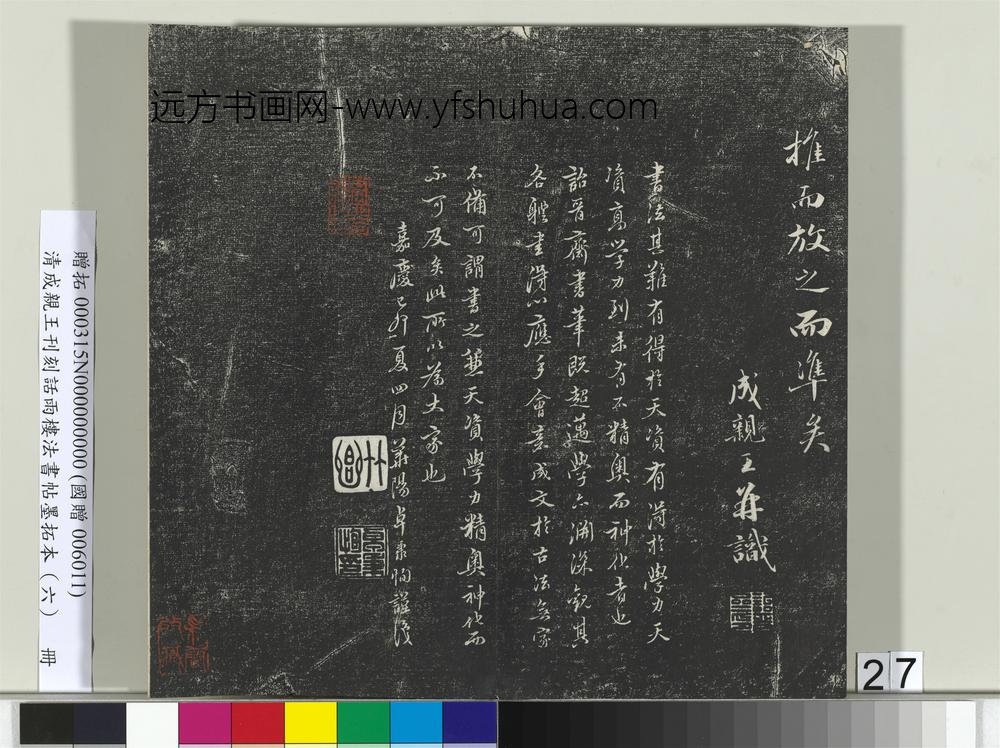 远方书画网-www.yfshuhua.com
推而放之而準矣
成親王并識
書法甚難有得於天資有得於學力天
資高学力到未有不精奥而神化者也
詒晋齋書筆既超邁學亦淵深觀其
各體書得心應手會意成文於古法無字
不備可謂書之兼天資學力精奥神化而
不可及矣此所以為大家也
嘉慶己卯夏四月華陽卓秉恬謹後
贈拓 000315N000000000 (國贈 006011)
清成親王刊刻話雨樓法書帖墨拓本（六） 冊
27